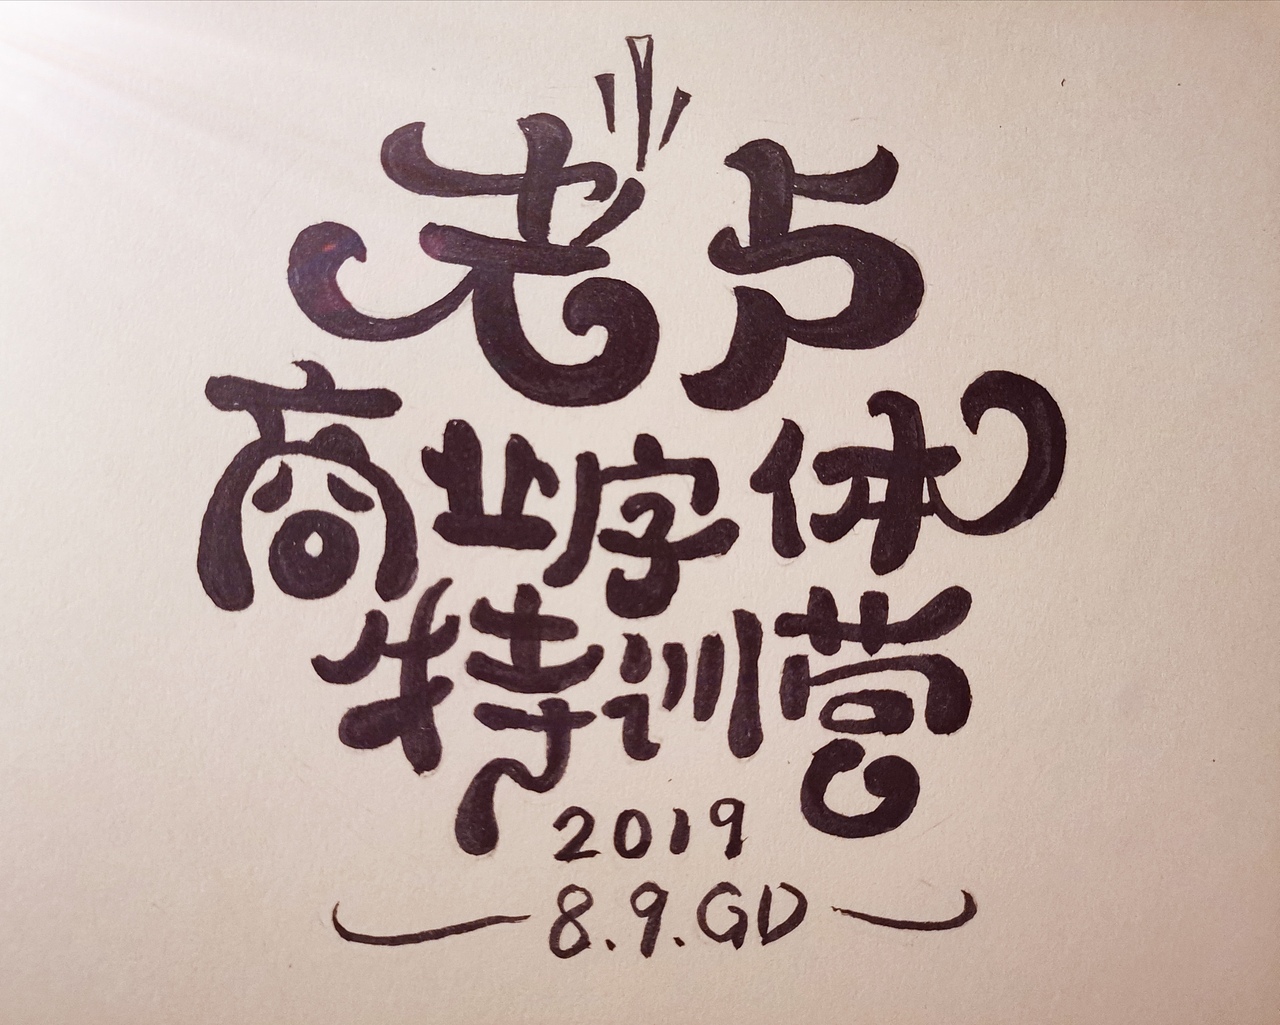 老卢
商业字体
特训营
2019
8.9.GD